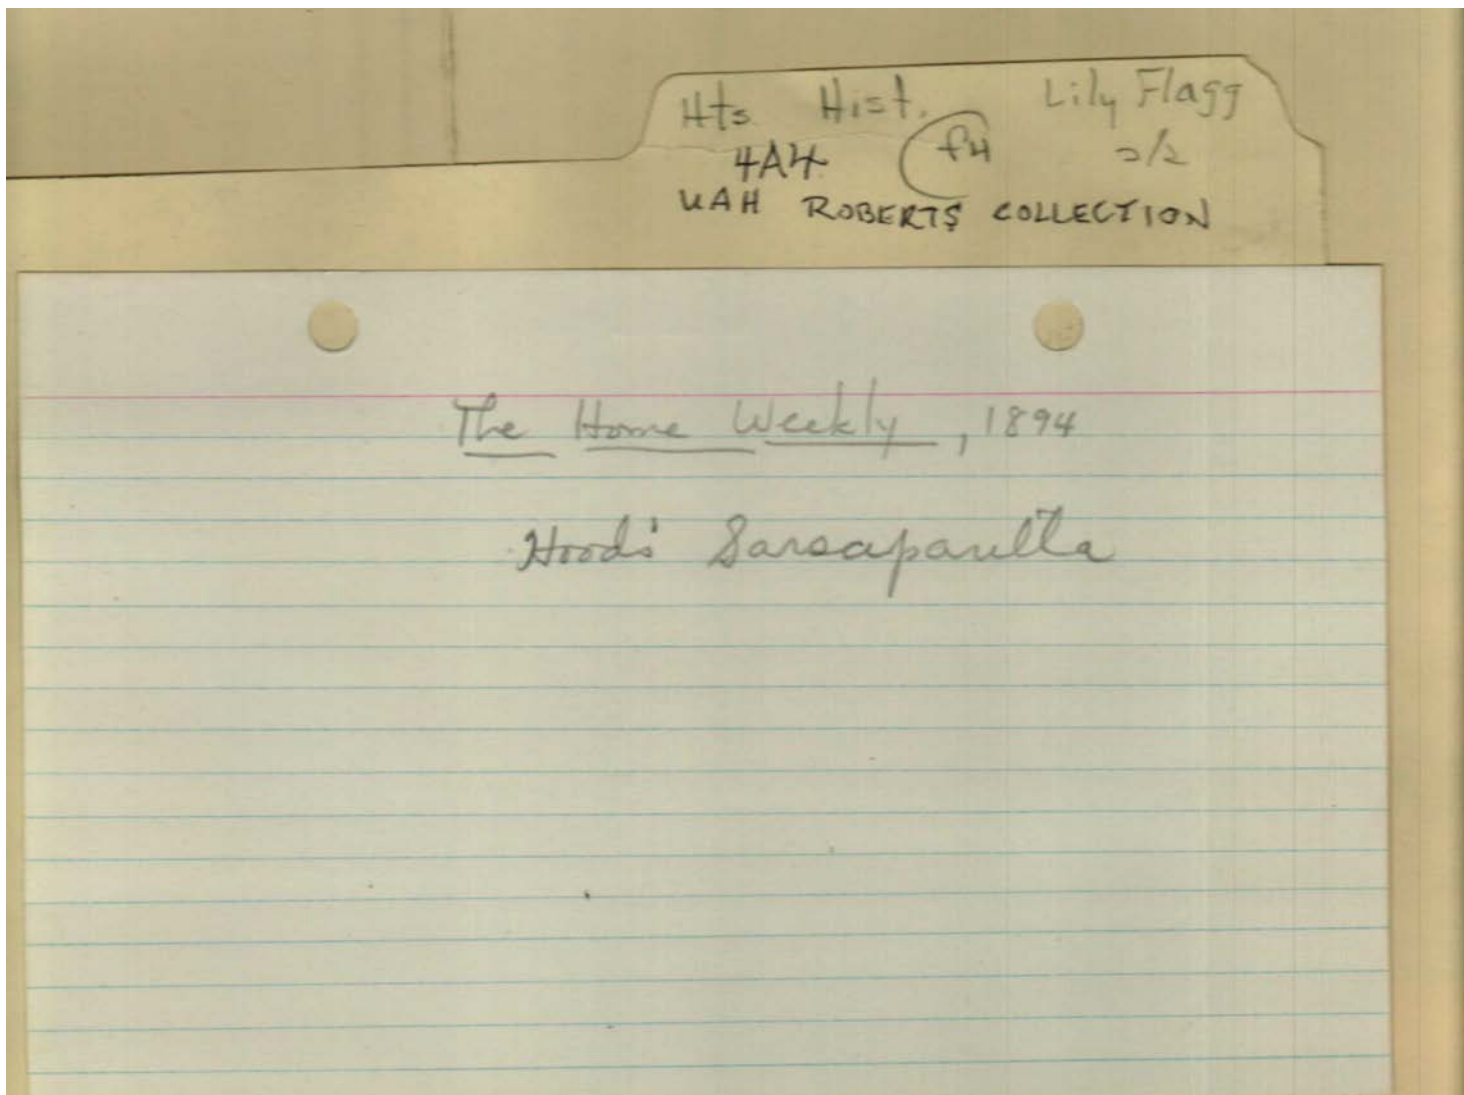 Hts. Hist. Lily Flagg
4A4 f4 2/2
UAH ROBERTS COLLECTION
The Home Weekly, 1894
Hood's Sarsaparilla